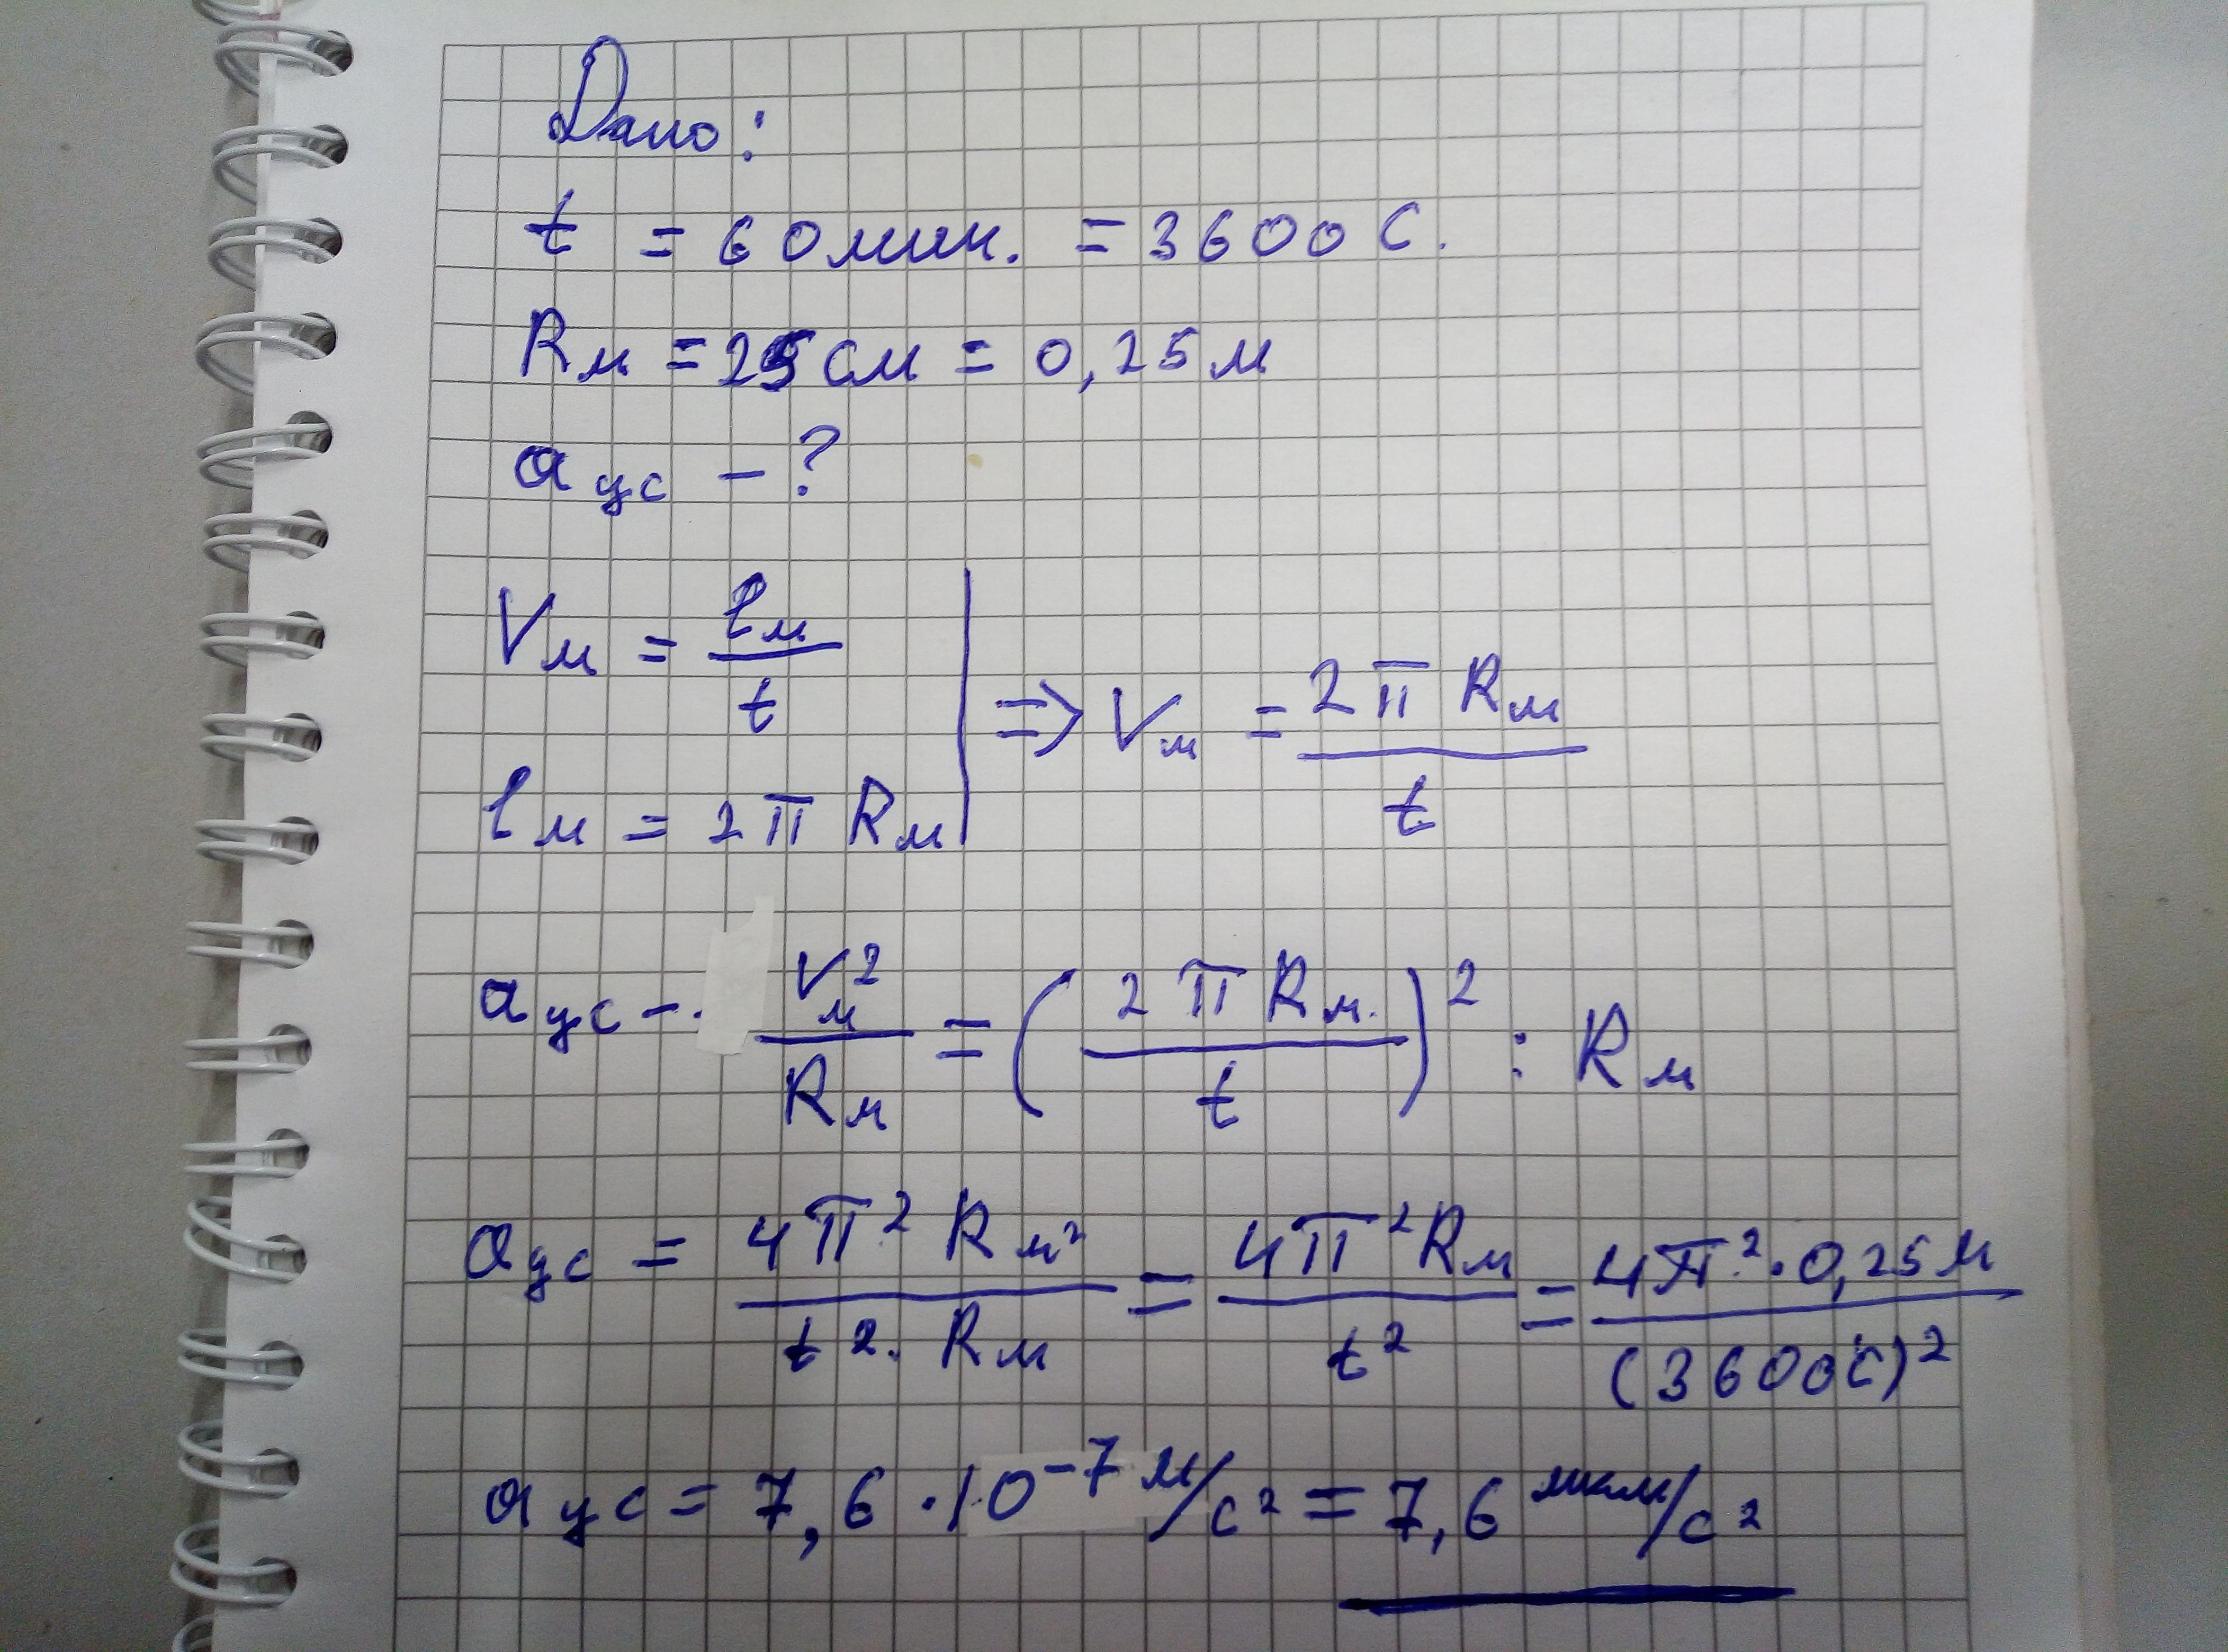 Дано:
t = 60 мин. = 3600 с.
Rм = 25 см = 0,25 м
aцс - ?
Vм = lм / t
lм = 2π Rм
=> Vм = 2π Rм / t
aцс - Vм² / Rм = (2π Rм. / t)² : Rм
aцс = 4π² Rм² / t². Rм = 4π² Rм / t² = 4π²·0,25 м / (3600с)²
aцс = 7,6·10⁻⁷ м/с² = 7,6 мкм/с²